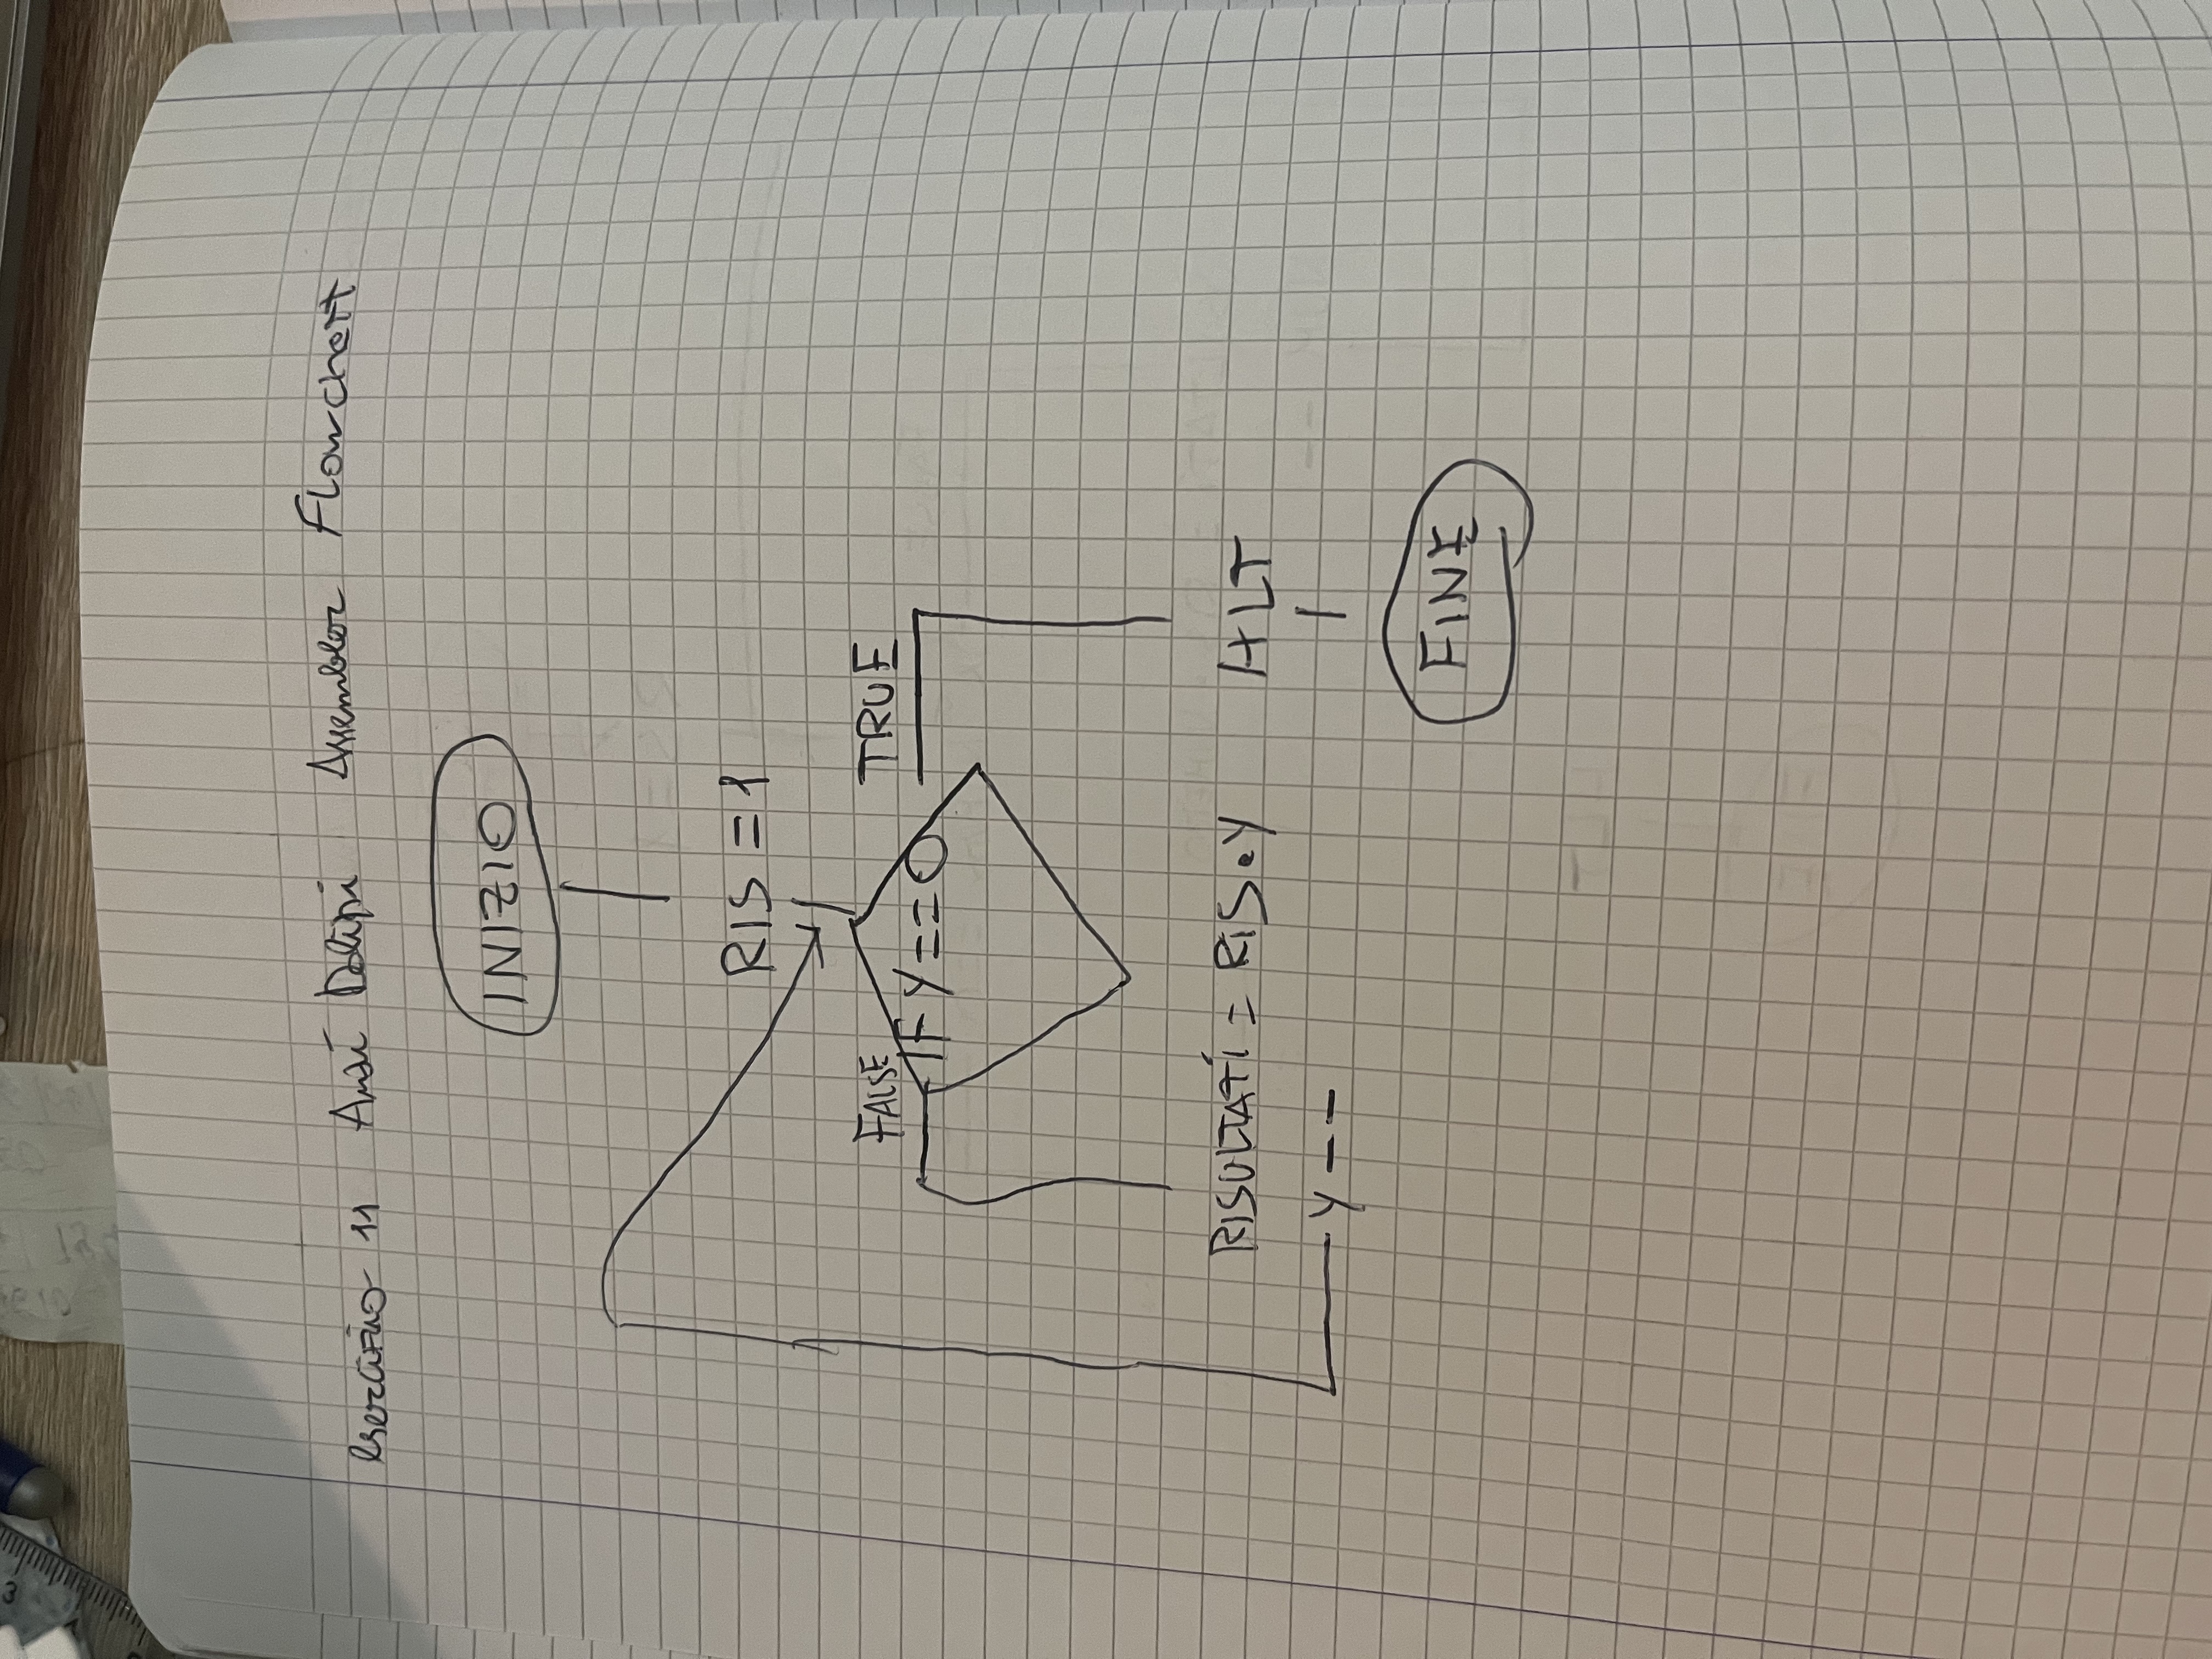 esercizio 11 Assembler Flowchart
INIZIO
RIS = 1
FALSE TRUE
IF Y == 0
RISULTATI = RIS . Y HLT
Y --
FINE